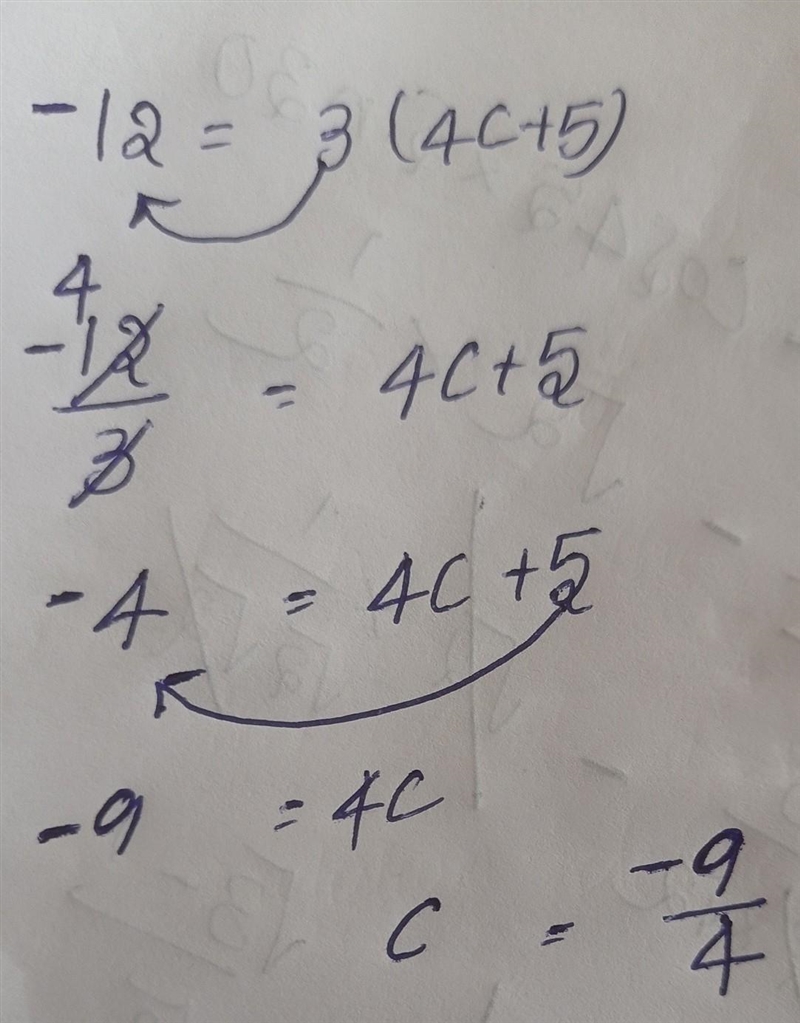 -12 = 3 (4C+5)
4
-12
3
= 4C+5
-4 = 4C+5
-9 = 4C
C = -9/4